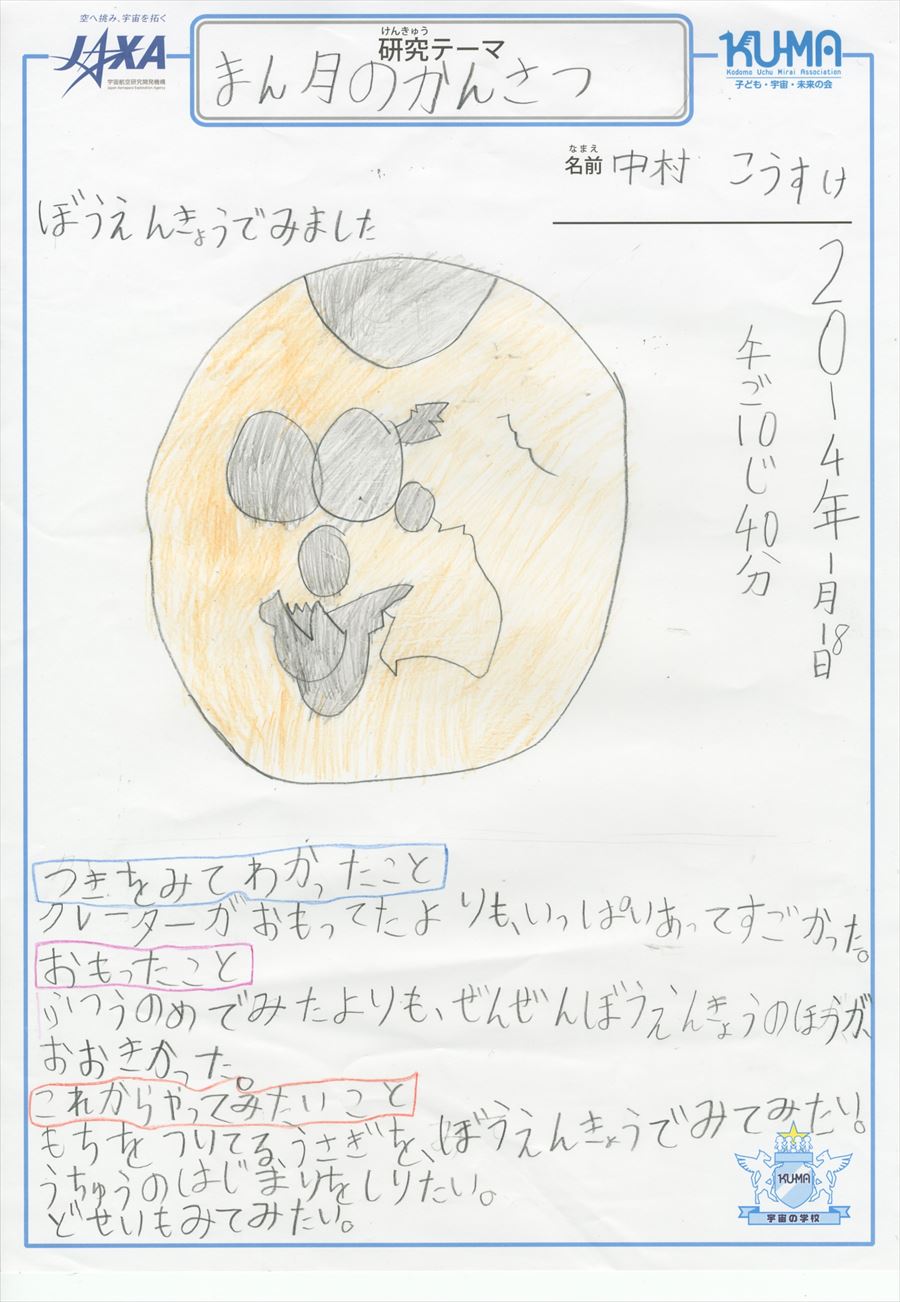 空へ挑み、宇宙を拓く
JAXA
宇宙航空研究開発機構
Japan Aerospace Exploration Agency
けんきゅう
研究テーマ
まん月のかんさつ
KU-MA
Kodomo Uchu Mirai Association
子ども・宇宙・未来の会
なまえ
名前 中村 こうすけ
ぼうえんきょうでみました
2014年1月18日
午ご10じ40分
つきをみてわかったこと
クレーターがおもってたよりも、いっぱいあってすごかった。
おもったこと
ふつうのめでみたよりも、ぜんぜんぼうえんきょうのほうが、
おおきかった。
これからやってみたいこと
もちをついてる、うさぎを、ぼうえんきょうでみてみたい。
うちゅうのはじまりをしりたい。
どせいもみてみたい。
KU-MA
宇宙の学校